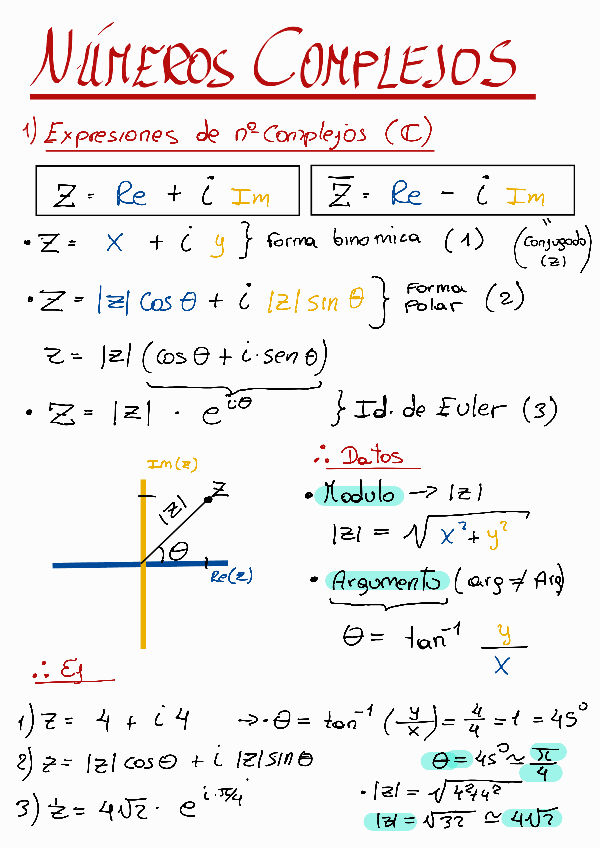 NÚMEROS COMPLEJOS
1) Expresiones de nº Complejos (ℂ)
Z = Re + i Im
Z̅ = Re - i Im
• Z = x + i y } forma binomica (1) (Conjugado (z))
• Z = |z| Cos θ + i |z| sin θ } Forma Polar (2)
z = |z| (cos θ + i · sen θ)
• Z = |z| · e^{iθ} } Id. de Euler (3)
Im(z)
Z
|z|
θ
Re(z)
∴ Datos
• Modulo -> |z|
|z| = √(x² + y²)
• Argumento (arg ≠ Arg)
θ = tan⁻¹ y/x
∴ Ej
1) z = 4 + i 4 -> · θ = tan⁻¹ (y/x) = 4/4 = 1 = 45°
2) z = |z| cos θ + i |z| sin θ
θ = 45° ≃ π/4
3) z = 4√2 · e^{i·π/4}
· |z| = √(4²+4²)
|z| = √32 ≃ 4√2